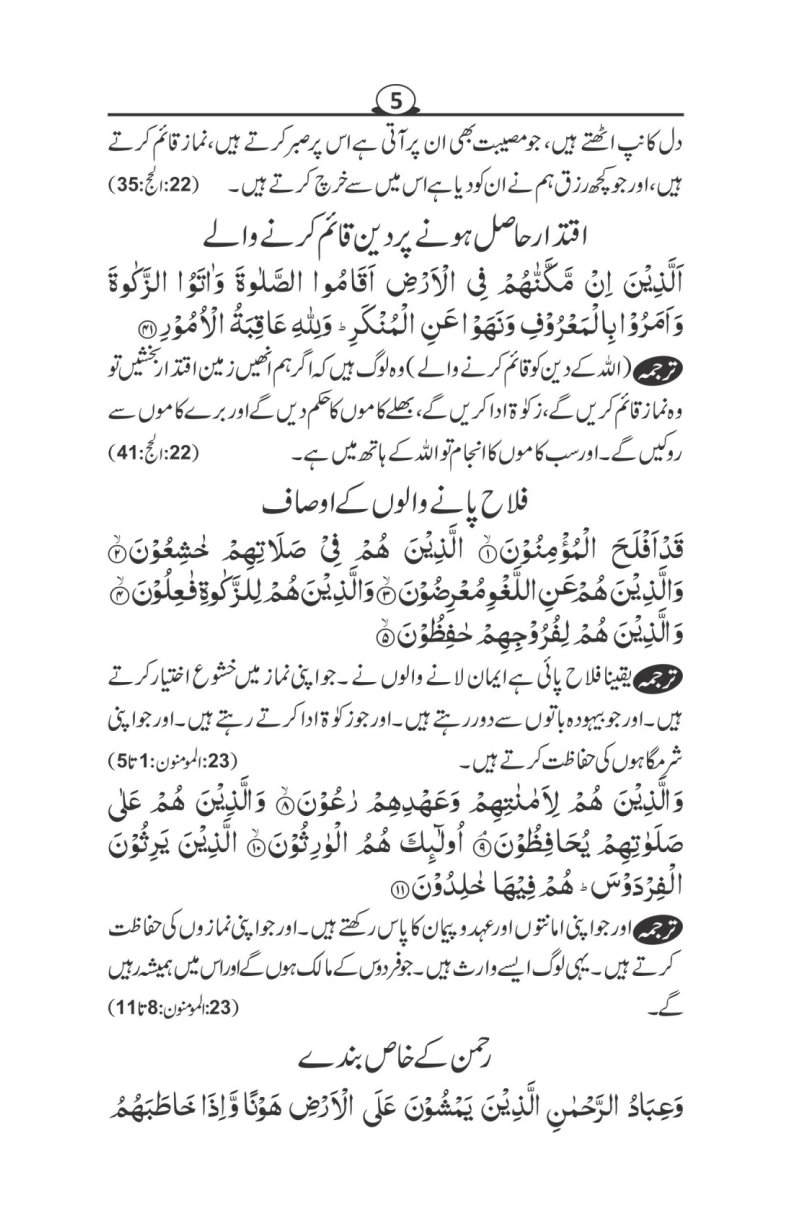 5
دل کانپ اٹھتے ہیں، جو مصیبت بھی ان پر آتی ہے اس پر صبر کرتے ہیں، نماز قائم کرتے
ہیں، اور جو کچھ رزق ہم نے ان کو دیا ہے اس میں سے خرچ کرتے ہیں۔ (22:الحج:35)
اقتدار حاصل ہونے پر دین قائم کرنے والے
اَلَّذِيْنَ اِنْ مَّكَّنّٰهُمْ فِي الْاَرْضِ اَقَامُوا الصَّلٰوةَ وَاٰتَوُا الزَّكٰوةَ
وَاَمَرُوْا بِالْمَعْرُوْفِ وَنَهَوْا عَنِ الْمُنْكَرِ ؕ وَلِلّٰهِ عَاقِبَةُ الْاُمُوْرِ ﴿۴۱﴾
ترجمہ (اللہ کے دین کو قائم کرنے والے) وہ لوگ ہیں کہ اگر ہم انھیں زمین اقتدار بخشیں تو
وہ نماز قائم کریں گے، زکوٰۃ ادا کریں گے، بھلے کاموں کا حکم دیں گے اور برے کاموں سے
روکیں گے۔ اور سب کاموں کا انجام تو اللہ کے ہاتھ میں ہے۔ (22:الحج:41)
فلاح پانے والوں کے اوصاف
قَدْ اَفْلَحَ الْمُؤْمِنُوْنَ ﴿۱﴾ۙ الَّذِيْنَ هُمْ فِيْ صَلَاتِهِمْ خٰشِعُوْنَ ﴿۲﴾ۙ
وَالَّذِيْنَ هُمْ عَنِ اللَّغْوِ مُعْرِضُوْنَ ﴿۳﴾ۙ وَالَّذِيْنَ هُمْ لِلزَّكٰوةِ فٰعِلُوْنَ ﴿۴﴾ۙ
وَالَّذِيْنَ هُمْ لِفُرُوْجِهِمْ حٰفِظُوْنَ ﴿۵﴾ۙ
ترجمہ یقینا فلاح پائی ہے ایمان لانے والوں نے۔ جو اپنی نماز میں خشوع اختیار کرتے
ہیں۔ اور جو بیہودہ باتوں سے دور رہتے ہیں۔ اور جو زکوٰۃ ادا کرتے رہتے ہیں۔ اور جو اپنی
شرمگاہوں کی حفاظت کرتے ہیں۔ (23:المومنون:1تا5)
وَالَّذِيْنَ هُمْ لِاَمٰنٰتِهِمْ وَعَهْدِهِمْ رٰعُوْنَ ﴿۸﴾ۙ وَالَّذِيْنَ هُمْ عَلٰى
صَلَوٰتِهِمْ يُحَافِظُوْنَ ﴿۹﴾ۘ اُولٰٓئِكَ هُمُ الْوٰرِثُوْنَ ﴿۱۰﴾ۙ الَّذِيْنَ يَرِثُوْنَ
الْفِرْدَوْسَ ؕ هُمْ فِيْهَا خٰلِدُوْنَ ﴿۱۱﴾
ترجمہ اور جو اپنی امانتوں اور عہد و پیمان کا پاس رکھتے ہیں۔ اور جو اپنی نمازوں کی حفاظت
کرتے ہیں۔ یہی لوگ ایسے وارث ہیں۔ جو فردوس کے مالک ہوں گے اور اس میں ہمیشہ رہیں
گے۔ (23:المومنون:8تا11)
رحمن کے خاص بندے
وَعِبَادُ الرَّحْمٰنِ الَّذِيْنَ يَمْشُوْنَ عَلَى الْاَرْضِ هَوْنًا وَّاِذَا خَاطَبَهُمُ